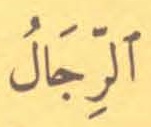 ٱلرِّجَالُ